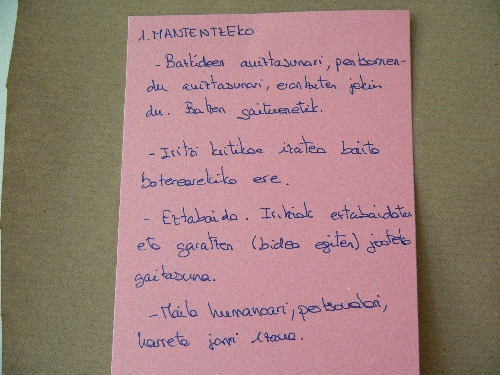 1. MANTENTZEKO
- Batkideen aniztasunari, pentsamen-
du aniztasunari, erantzuten jakin
du. Balten gaituenetik.
- Iritzi kritikoa izatea baita
boterearekiko ere.
- Eztabaida. Iritziak eztabaidatzen
eta garatzen (bidea egiten) joateko
gaitasuna.
- Maila humanoari, pertsonalari,
harreta jarri izana.